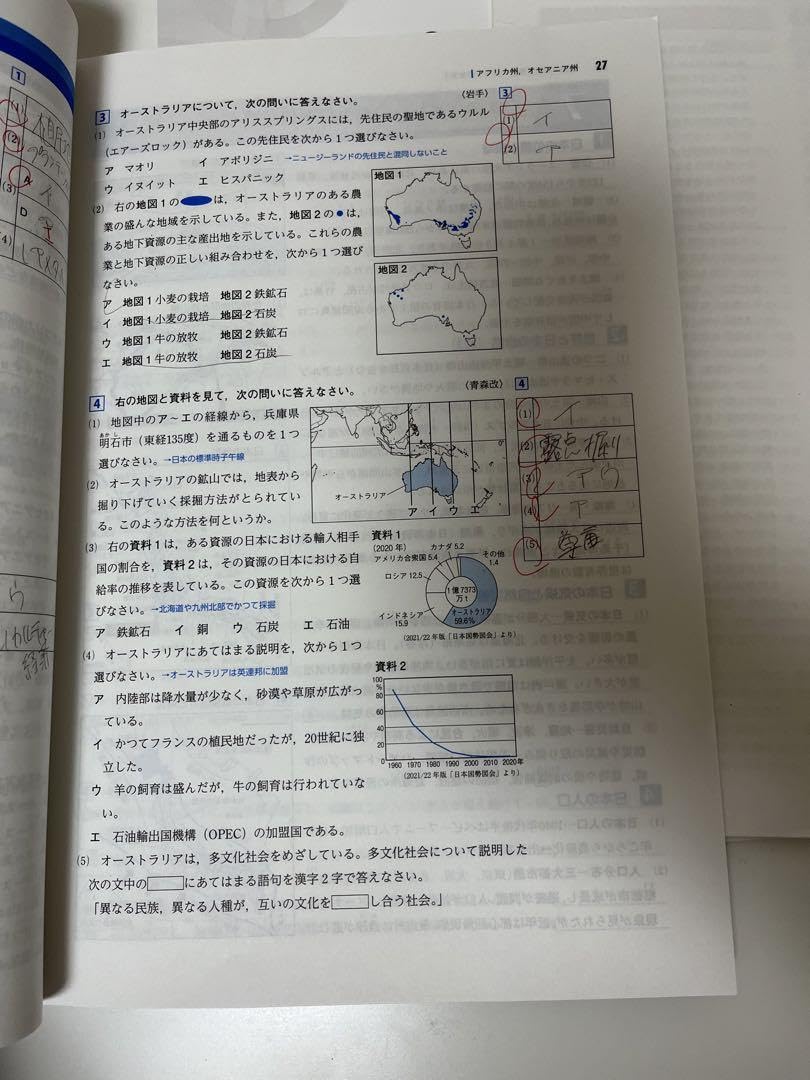 アフリカ州，オセアニア州 27
3 オーストラリアについて，次の問いに答えなさい。
(岩手)
(1) オーストラリア中央部のアリススプリングスには，先住民の聖地であるウルル
(エアーズロック)がある。この先住民を次から１つ選びなさい。
ア マオリ イ アボリジニ →ニュージーランドの先住民と混同しないこと
ウ イヌイット エ ヒスパニック
(2) 右の地図１の は，オーストラリアのある農
業の盛んな地域を示している。また，地図２の●は，
ある地下資源の主な産出地を示している。これらの農
業と地下資源の正しい組み合わせを，次から１つ選び
なさい。
ア 地図１小麦の栽培 地図２鉄鉱石
イ 地図１小麦の栽培 地図２石炭
ウ 地図１牛の放牧 地図２鉄鉱石
エ 地図１牛の放牧 地図２石炭
地図１
地図２
3
(1) イ
(2) ア
4 右の地図と資料を見て，次の問いに答えなさい。
(青森改)
(1) 地図中のア～エの経線から，兵庫県
あかし
明石市（東経135度）を通るものを１つ
選びなさい。→日本の標準時子午線
(2) オーストラリアの鉱山では，地表から
掘り下げていく採掘方法がとられてい
る。このような方法を何というか。
(3) 右の資料１は，ある資源の日本における輸入相手
国の割合を，資料２は，その資源の日本における自
給率の推移を表している。この資源を次から１つ選
びなさい。→北海道や九州北部でかつて採掘
ア 鉄鉱石 イ 銅 ウ 石炭 エ 石油
(4) オーストラリアにあてはまる説明を，次から１つ
選びなさい。→オーストラリアは英連邦に加盟
ア 内陸部は降水量が少なく，砂漠や草原が広がっ
ている。
イ かつてフランスの植民地だったが，20世紀に独
立した。
ウ 羊の飼育は盛んだが，牛の飼育は行われていな
い。
エ 石油輸出国機構（OPEC）の加盟国である。
(5) オーストラリアは，多文化社会をめざしている。多文化社会について説明した
次の文中の にあてはまる語句を漢字２字で答えなさい。
「異なる民族，異なる人種が，互いの文化を し合う社会。」
オーストラリア
ア イ ウ エ
資料１
(2020年)
カナダ 5.2
その他
1.4
アメリカ合衆国 5.4
ロシア 12.5
インドネシア
15.9
1億7373
万t
オーストラリア
59.6%
(2021/22年版「日本国勢図会」より)
資料２
100
%
80
60
40
20
0
1960 1970 1980 1990 2000 2010 2020年
(2021/22年版「日本国勢図会」より)
4
(1) イ
(2) 露点掘り
(3) ウ
(4) ア
(5) 尊重
1
(1)
(2)
(3) A
D